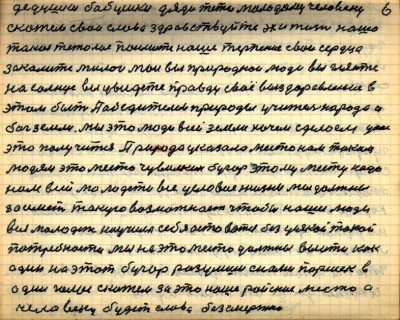 дедушки бабушки дяди тёти молодому человеку 6
скажем свои слова здравствуйте эх и жизнь наша
такая поймите наше терпение свои сердца
закалите милои мои вы природнои люди вы гляньте
на солнце вы увидете правду своё выздаровление в
этом быть победителем природы учителя народа а
бог земли. мы это люди всей земли начем сделаем уже
это получится природа указала место нам таким
людям это место чувилкин бугор этому месту надо
нам всей молодёжи все целовое жизни мы должны
заиметь такую возможность чтобы наши люди
вся молодёж научился без всякой такой
потребности мы на это место должны выити как
один на этот бугор разумши сняли в
один голос скажем за это наше райское место а
человеку будет слава бессмертно